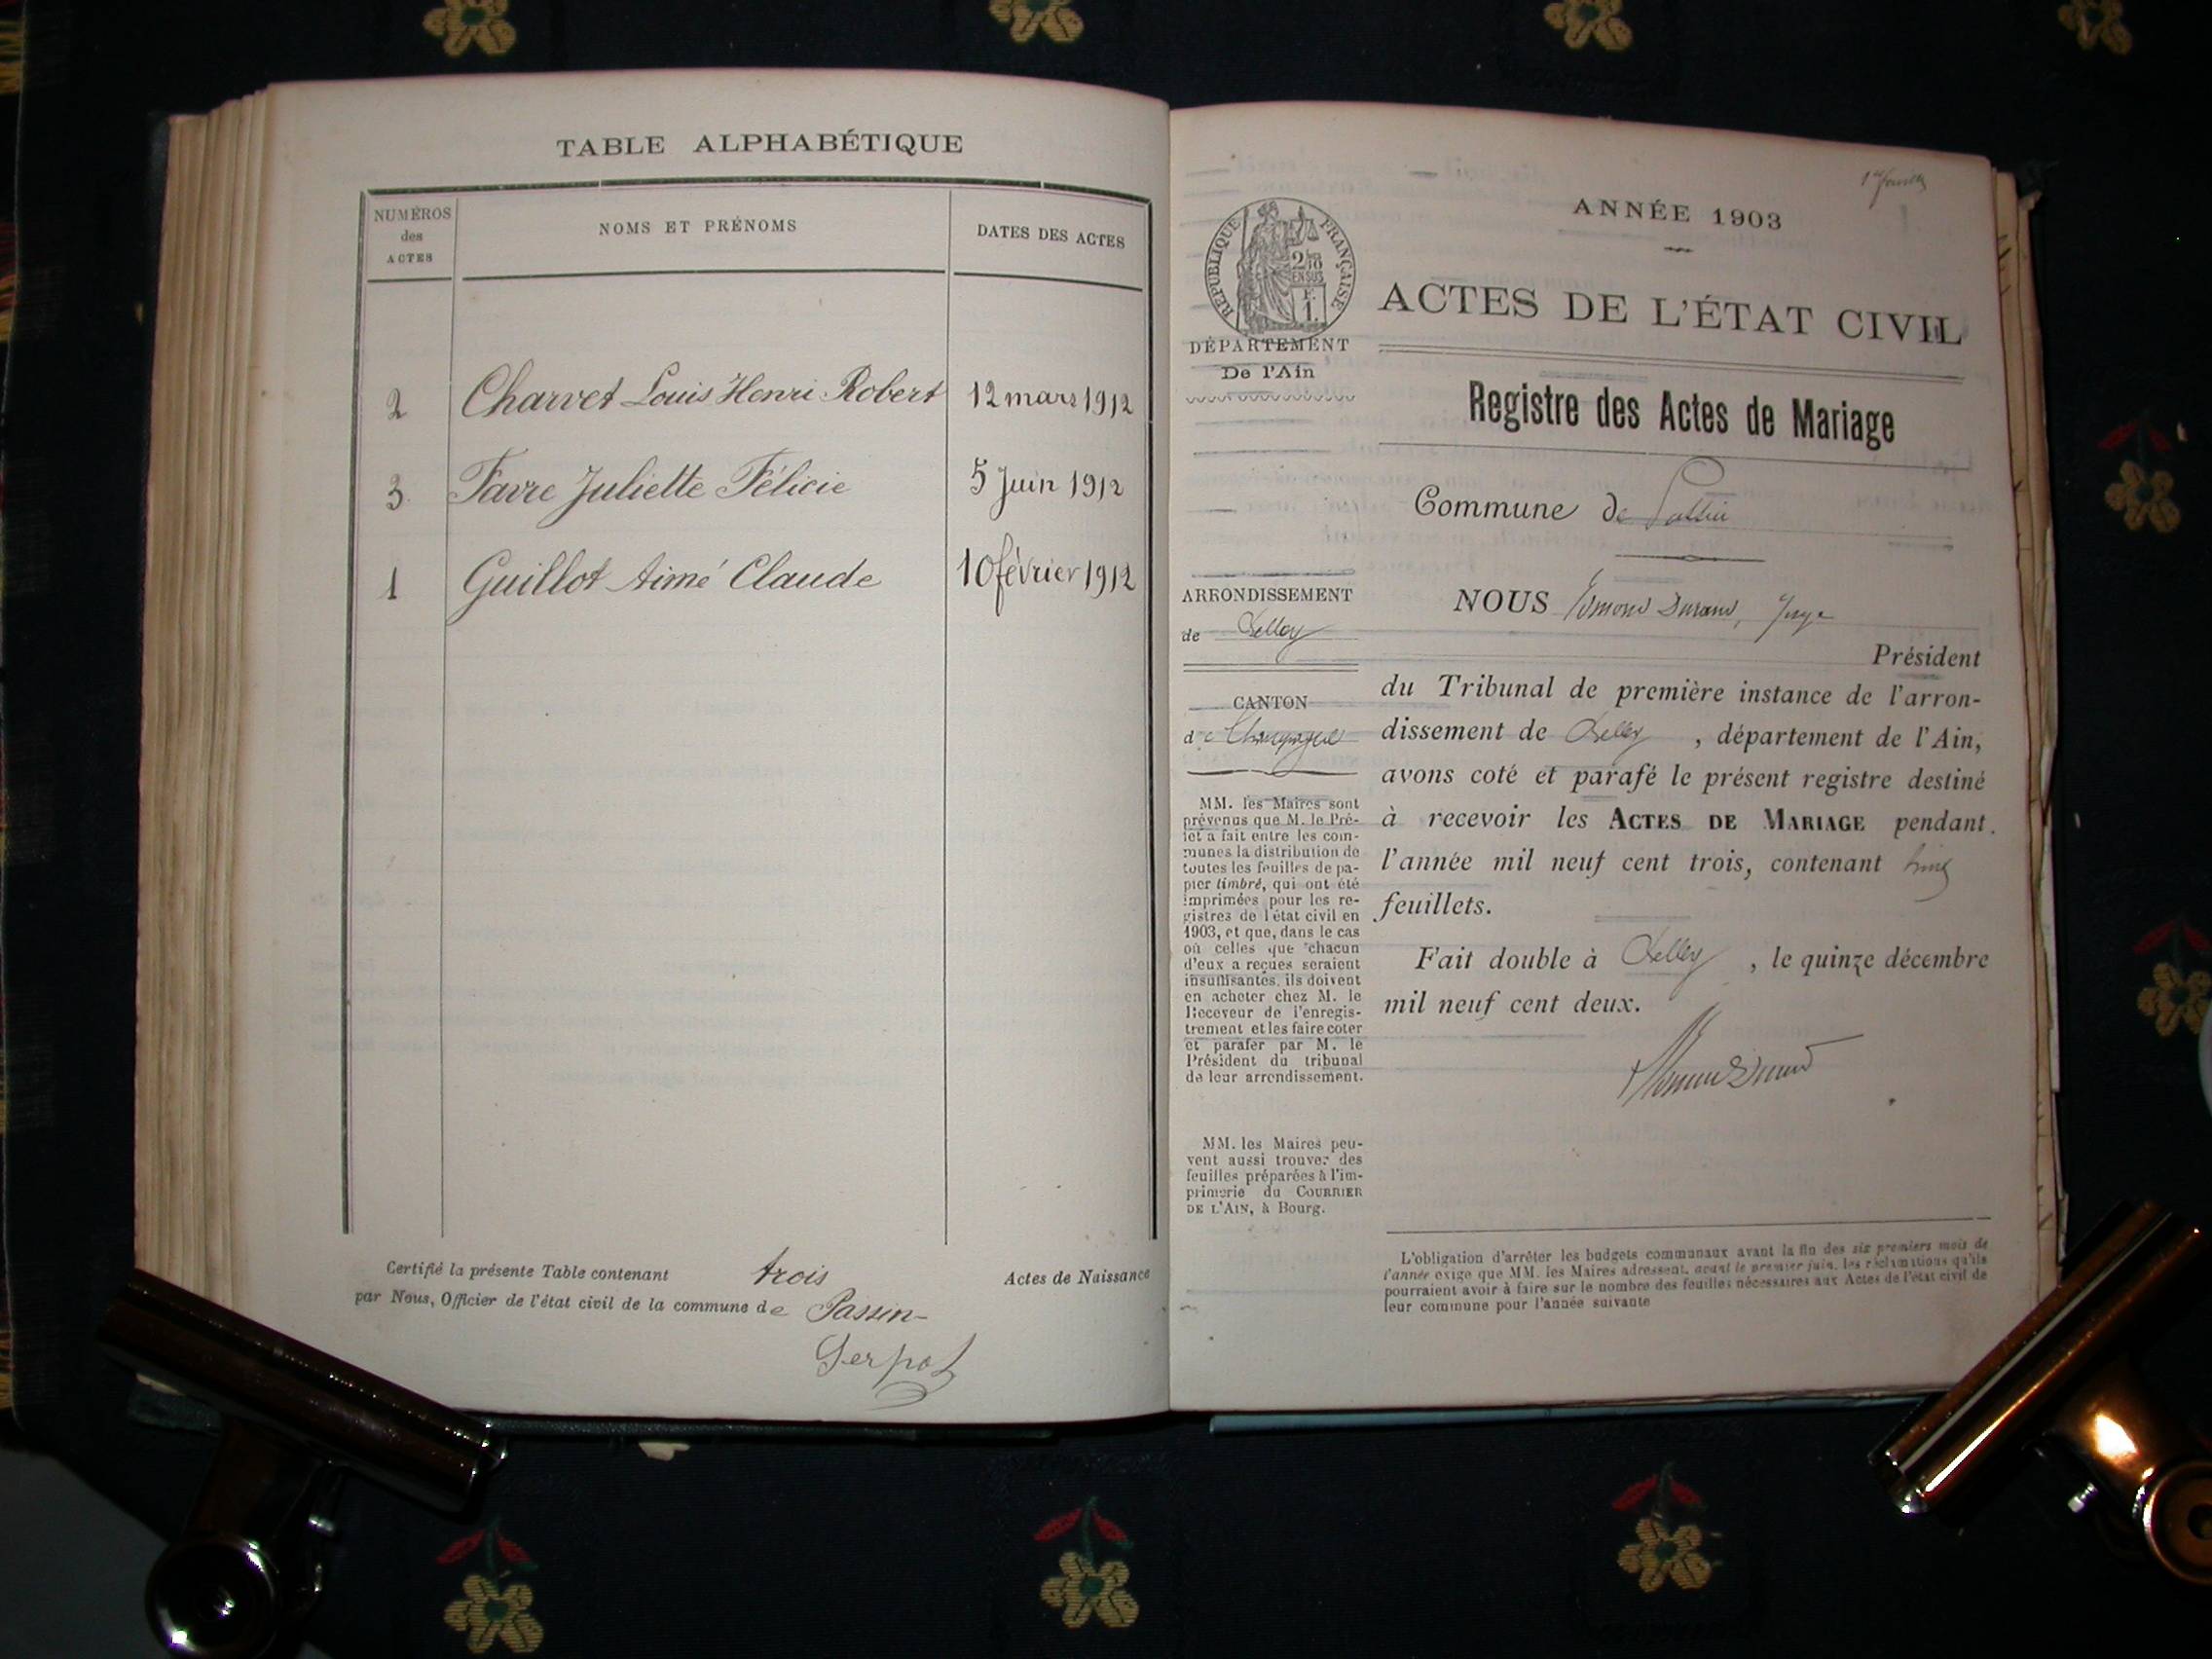 TABLE ALPHABÉTIQUE
NUMÉROS
des
ACTES
NOMS ET PRÉNOMS
DATES DES ACTES
2 Charvet Louis Henri Robert 12 mars 1912
3. Favre Juliette Félicie 5 Juin 1912
1 Guillot Aimé Claude 10 février 1912
Certifié la présente Table contenant trois Actes de Naissance
par Nous, Officier de l'état civil de la commune de Passin-
Gerpot
1er feuillet
ANNÉE 1903
RÉPUBLIQUE FRANÇAISE
2/10
EN SUS
F.
1.
ACTES DE L'ÉTAT CIVIL
DÉPARTEMENT
De l'Ain
Registre des Actes de Mariage
Commune de Passin
ARRONDISSEMENT
de Belley
CANTON
de Champagne
MM. les Maires sont
prévenus que M. le Pré-
fet a fait entre les com-
munes la distribution de
toutes les feuilles de pa-
pier timbré, qui ont été
imprimées pour les re-
gistres de l'état civil en
1903, et que, dans le cas
où celles que chacun
d'eux a reçues seraient
insuffisantes, ils doivent
en acheter chez M. le
Receveur de l'enregis-
trement et les faire coter
et parafer par M. le
Président du tribunal
de leur arrondissement.
MM. les Maires peu-
vent aussi trouver des
feuilles préparées à l'im-
primerie du COURRIER
DE L'AIN, à Bourg.
NOUS Edmond Durand, Juge
Président
du Tribunal de première instance de l'arron-
dissement de Belley, département de l'Ain,
avons coté et parafé le présent registre destiné
à recevoir les ACTES DE MARIAGE pendant
l'année mil neuf cent trois, contenant
feuillets.
Fait double à Belley, le quinze décembre
mil neuf cent deux.
Edmond Durand
L'obligation d'arrêter les budgets communaux avant la fin des six premiers mois de
l'année exige que MM. les Maires adressent, avant le premier juin, les réclamations qu'ils
pourraient avoir à faire sur le nombre des feuilles nécessaires aux Actes de l'état civil de
leur commune pour l'année suivante